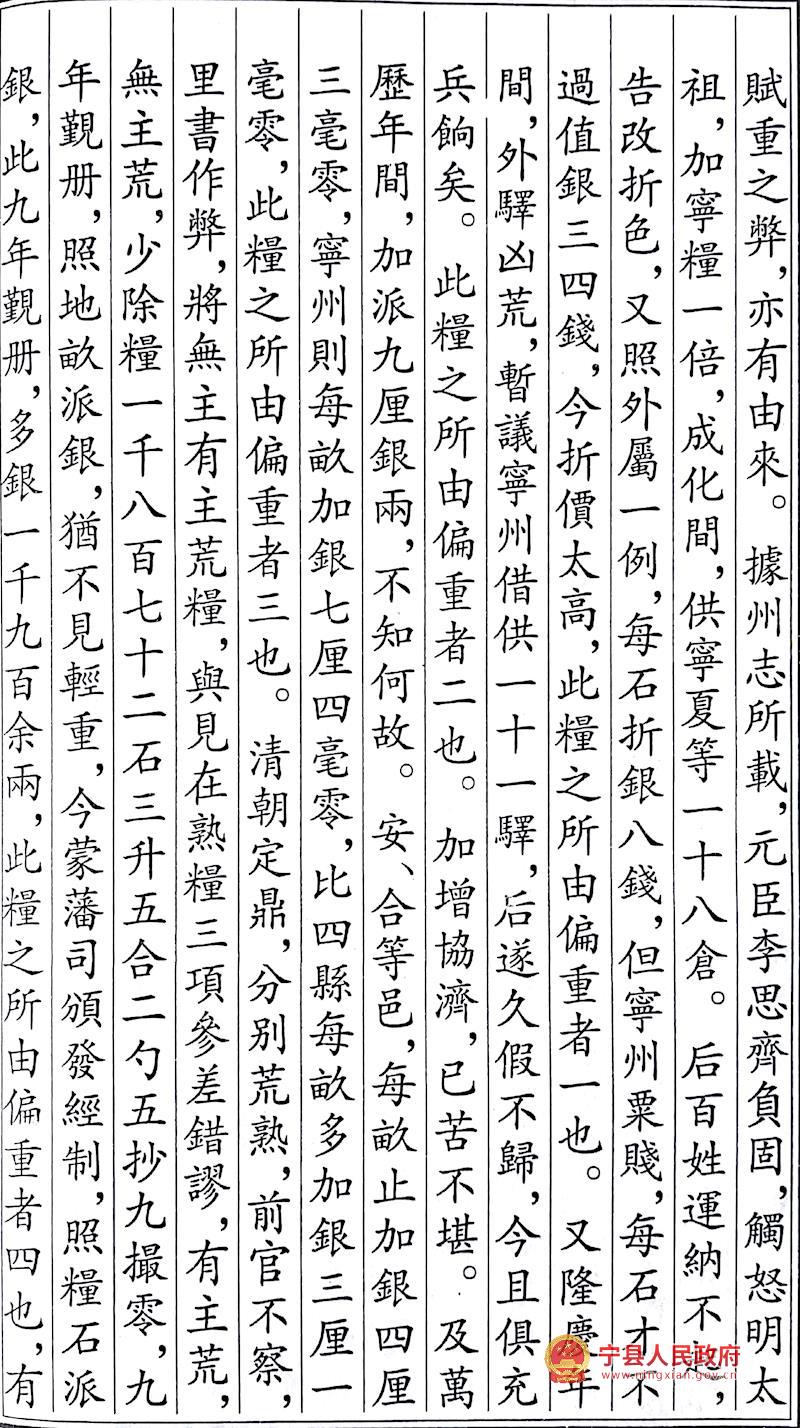 賦重之弊，亦有由來。據州志所載，元臣李思齊負固，觸怒明太
祖，加寧糧一倍，成化間，供寧夏等一十八倉。后百姓運納不起，
告改折色，又照外屬一例，每石折銀八錢，但寧州粟賤，每石才不
過值銀三四錢，今折價太高，此糧之所由偏重者一也。又隆慶年
間，外驛凶荒，暫議寧州借供一十一驛，后遂久假不歸，今且俱充
兵餉矣。此糧之所由偏重者二也。加增協濟，已苦不堪。及萬
歷年間，加派九厘銀兩，不知何故。安、合等邑，每畝止加銀四厘
三毫零，寧州則每畝加銀七厘四毫零，比四縣每畝多加銀三厘一
毫零，此糧之所由偏重者三也。清朝定鼎，分別荒熟，前官不察，
里書作弊，將無主有主荒糧，與見在熟糧三項參差錯謬，有主荒，
無主荒，少除糧一千八百七十二石三升五合二勺五抄九撮零，九
年覲册，照地畝派銀，猶不見輕重，今蒙藩司頒發經制，照糧石派
銀，此九年覲册，多銀一千九百余兩，此糧之所由偏重者四也，有
宁县人民政府
www.ningxian.gov.cn